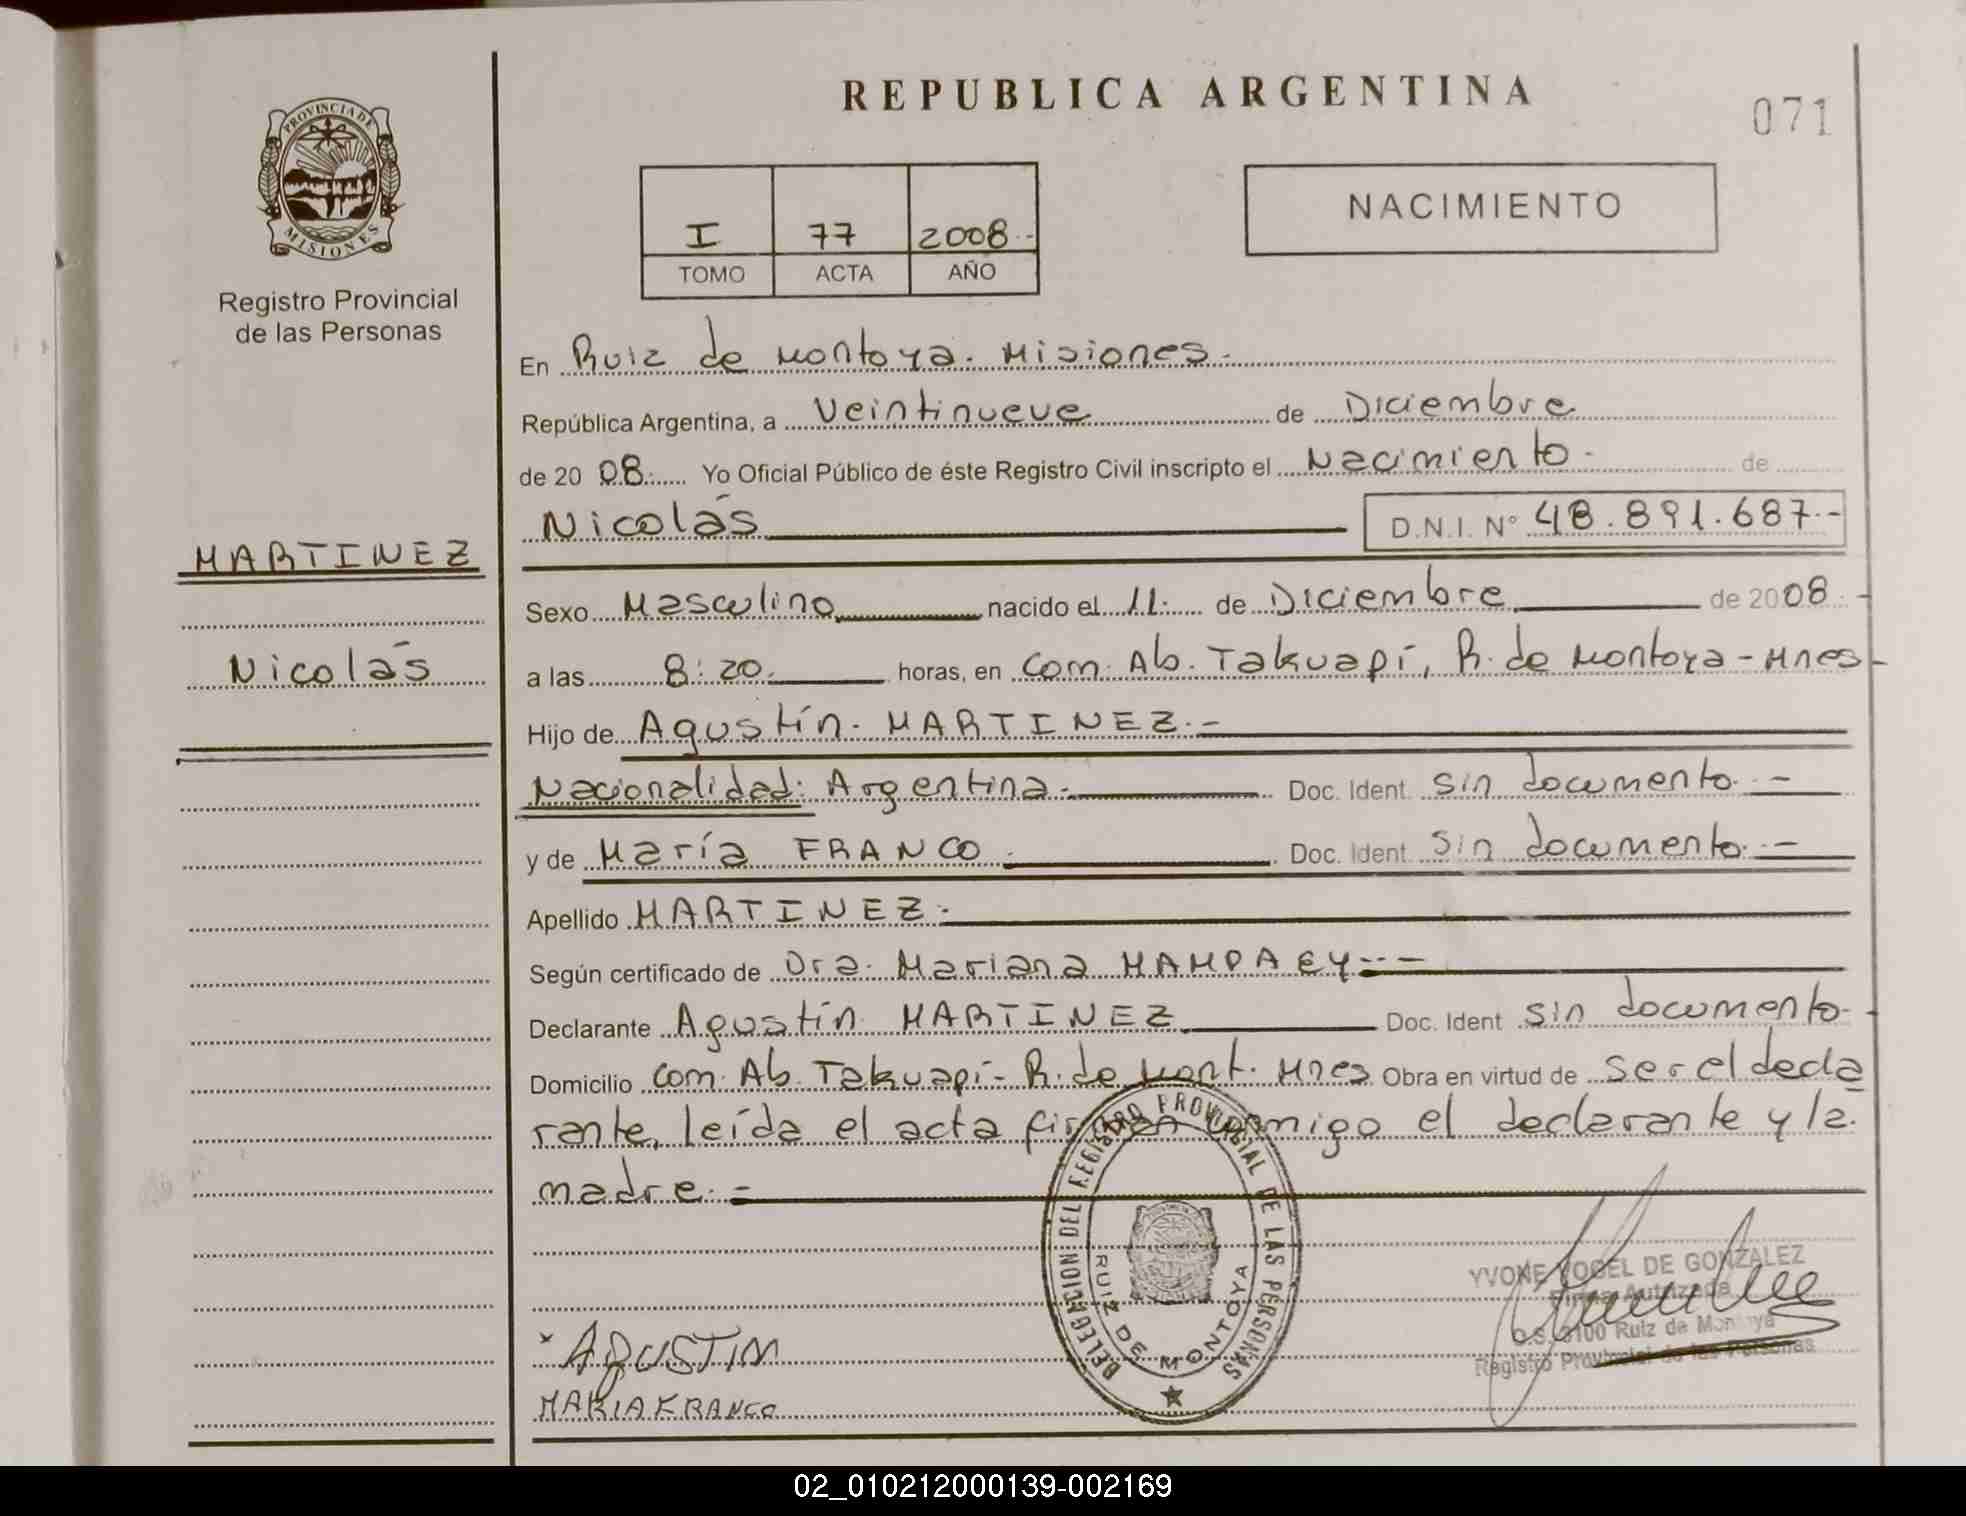 REPUBLICA ARGENTINA
071
PROVINCIA DE
MISIONES
Registro Provincial
de las Personas
I 77 2008.-
TOMO ACTA AÑO
NACIMIENTO
En Ruiz de Montoya. Misiones.-
República Argentina, a Veintinueve de Diciembre
de 2008. Yo Oficial Público de éste Registro Civil inscripto el Nacimiento. de
Nicolás D.N.I. Nº 48.891.687.-
MARTINEZ
Nicolás
Sexo Masculino nacido el 11. de Diciembre de 2008.-
a las 8:20. horas, en Com. Ab. Takuapí, R. de Montoya - Mnes -
Hijo de Agustín. MARTINEZ.-
Nacionalidad: Argentina.- Doc. Ident. sin documento.-
y de María FRANCO. Doc. Ident. sin documento.-
Apellido MARTINEZ.
Según certificado de Dra. Mariana MAMPAEY.--
Declarante Agustín MARTINEZ Doc. Ident sin documento.-
Domicilio Com. Ab. Takuapí - R. de Mont. Mnes Obra en virtud de ser el decla
rante, leída el acta firman conmigo el declarante y la
madre.-
DELEGACION DEL REGISTRO PROVINCIAL DE LAS PERSONAS
RUIZ DE MONTOYA
YVONE VOGEL DE GONZALEZ
Firma Autorizada
O.S. 3100 Ruiz de Montoya
Registro Provincial de las Personas
x AGUSTIN
MARIA FRANCO
02_010212000139-002169